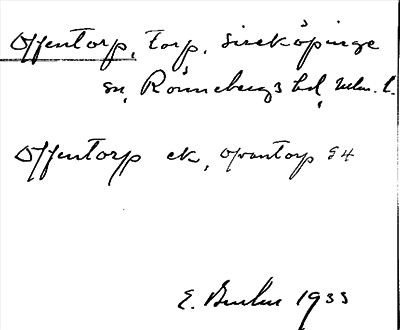 Offentorp, torp, Sireköpinge
sn, Rönnebergs hd, Mlm. l.
Offentorp ek, ovantorp 54
E. 1933